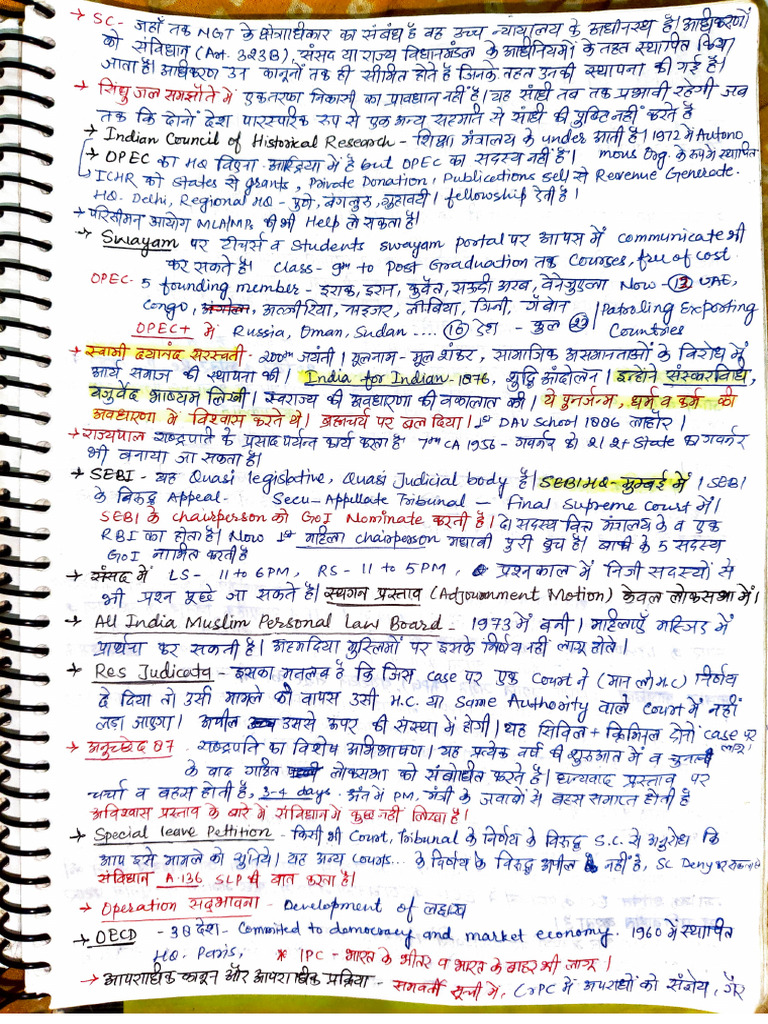 → SC- जहाँ तक NGT के क्षेत्राधिकार का संबंध है वह उच्च न्यायालय के अधीनस्थ है। अधिकरणों
को संविधान (Art. 323B), संसद या राज्य विधानमंडल के अधिनियमों के तहत स्थापित किया
जाता है। अधिकरण उन कानूनों तक ही सीमित होते है जिनके तहत उनकी स्थापना की गई है।
→ सिंधु जल समझौते में एकतरफा निकासी का प्रावधान नहीं है। यह संधी तब तक प्रभावी रहेगी जब
तक कि दोनों देश पारस्परिक रूप से एक अन्य सहमति से संधी की पुष्टि नहीं करते है
→ Indian Council of Historical Research - शिक्षा मंत्रालय के under आती है। 1972 में Autono
mous Org. के रूप में स्थापित
→ OPEC का HQ विएना आस्ट्रिया में है but OPEC का सदस्य नहीं है।
ICHR को States से grants, Private Donation, Publications sell से Revenue Generate.
HQ- Delhi, Regional HQ - पुणे, बंगलुरु, गुहावटी। fellowship देती है।
→ परिसीमन आयोग MLA/MPs की भी Help ले सकता है।
→ Swayam पर टीचर्स व students swayam portal पर आपस में communicate भी
कर सकते है। Class - 9th to Post Graduation तक Courses, free of cost.
OPEC- 5 founding member - इराक, इरान, कुवैत, सऊदी अरब, वेनेजुएला Now - 12 UAE,
Congo, अल्जीरिया, नाइजर, लीबिया, गिनी, गैबोन / Patroling Exporting
Countries
OPEC+ में Russia, Oman, Sudan .... 10 देश - कुल 22
→ स्वामी दयानंद सरस्वती - 200th जयंती। मूलनाम - मूल शंकर, सामाजिक असमानताओं के विरोध में
आर्य समाज की स्थापना की। India for Indian - 1876, शुद्धि आंदोलन। इन्होंने संस्कारविधि,
यजुर्वेद भाष्यम लिखी। स्वराज्य की अवधारणा की वकालात की। ये पुनर्जन्म, धर्म व कर्म की
अवधारणा में विश्वास करते थे। ब्रह्मचर्य पर बल दिया। 1st DAV School 1886 लाहौर।
→ राज्यपाल राष्ट्रपति के प्रसाद पर्यन्त कार्य करता है। 7th CA 1956 - गवर्नर को 2 / 2+ State का गवर्नर
भी बनाया जा सकता है।
→ SEBI - यह Quasi legislative, Quasi Judicial body है। SEBI HQ - मुम्बई में। SEBI
के विरुद्ध Appeal - Secu - Appellate Tribunal — final Supreme court में।
SEBI के chairperson को GoI Nominate करती है। दो सदस्य वित्त मंत्रालय के व एक
RBI का होता है। Now 1st महिला chairperson माधाबी पुरी बुच है। बाकी के 5 सदस्य
GoI नामित करती है
→ संसद में LS - 11 to 6 PM, RS - 11 to 5 PM, प्रश्नकाल में निजी सदस्यों से
भी प्रश्न पूछे जा सकते है। स्थगन प्रस्ताव (Adjournment Motion) केवल लोकसभा में।
→ All India Muslim Personal Law Board - 1973 में बनी। महिलाएँ मस्जिद में
प्रार्थना कर सकती है। अहमदिया मुस्लिमों पर इसके निर्णय नहीं लागू होते।
→ Res Judicata - इसका मतलब है कि जिस case पर एक Court ने (मान लो H.C) निर्णय
दे दिया तो उसी मामले को वापस उसी H.C. या same Authority वाले Court में नहीं
लड़ा जाएगा। अपील उससे ऊपर की संस्था में होगी। यह सिविल + क्रिमिनल दोनों case पर
लागू।
→ अनुच्छेद 87 राष्ट्रपति का विशेष अभिभाषण। यह प्रत्येक वर्ष की शुरुआत में व चुनाव
के बाद गठित लोकसभा को संबोधित करते है। धन्यवाद प्रस्ताव पर
चर्चा व बहस होती है, 3-4 days. अंत में PM, मंत्री के जवाबों से बहस समाप्त होती है
अविश्वास प्रस्ताव के बारे में संविधान में कुछ नहीं लिखा है।
→ Special leave Pettition - किसी भी Court, Tribunal के निर्णय के विरुद्ध S.C. से अनुरोध कि
आप इसे मामले को सुनिये। यह अन्य Courts... के निर्णय के विरुद्ध अपील नहीं है, SC Deny
संविधान A.136 SLP की बात करता है।
→ Operation सद्भावना - Development of लद्दाख
→ OECD - 38 देश - Committed to democracy and market economy. 1960 में स्थापित
HQ. Paris, * IPC - भारत के भीतर व भारत के बाहर भी लागू।
→ आपराधिक कानून और आपराधिक प्रक्रिया - समवर्ती सूची में, CrPC में अपराधों को संज्ञेय, गैर